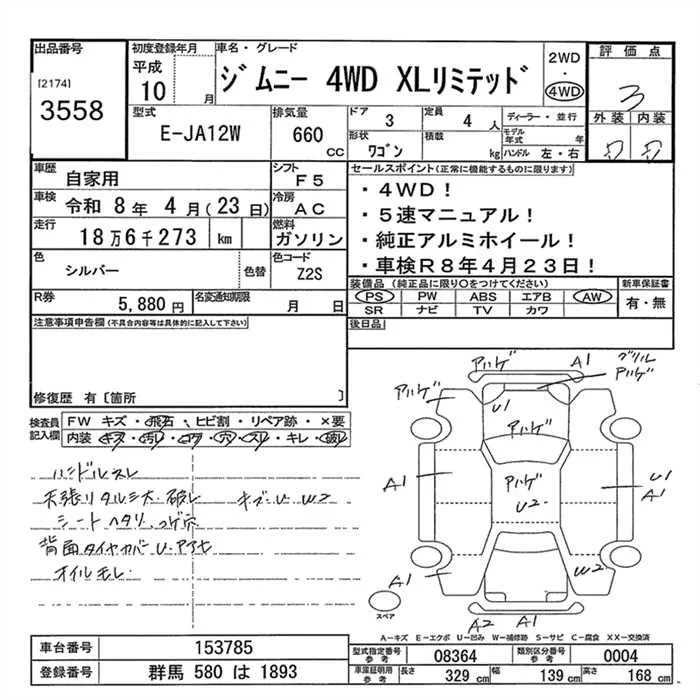 出品番号
[2174]
3558
初度登録年月
平成
10 月
車名・グレード
ジムニー 4WD XLリミテッド
2WD
・
4WD
評価点
3
外装 内装
D D
型式
E-JA12W
排気量
660 CC
ドア
3
定員
4 人
形状
ワゴン
積載
kg
ディーラー・並行
モデル年式 年
ハンドル 左・右
車歴
自家用
シフト
F5
車検
令和 8年 4月(23日)
冷房
AC
走行
18万6千273 km
燃料
ガソリン
色
シルバー
色替
色コード
Z2S
R券
5,880 円
名変通知期限
月 日
セールスポイント(正常に機能するものに限ります)
・4WD!
・5速マニュアル!
・純正アルミホイール!
・車検R8年4月23日!
装備品(純正品に限り○をつけてください)
PS PW ABS エアB AW
SR ナビ TV カワ
新車保証書
有・無
後日品
注意事項申告欄(不具合内容等は具体的に記入して下さい)
修復歴 有〔箇所 〕
検査員
記入欄
FW キズ・飛石、ヒビ割・リペア跡・×要
内装・キズ・汚レ・コゲ・穴・スレ・キレ・破レ
ハンドルスレ
天張リタルミ大・破レ キズ・U W2
シートヘタリ、コゲ穴
背面タイヤカバーU・アセ
オイルモレ
アハゲ
A1
グリル
アハゲ
アハゲ
U1
アハゲ
アハゲ
U2
A1
U1
A1
A1
W2
A2
A1
スペア
A-キズ E-エクボ U-凹ミ W-補修跡 S-サビ C-腐食 XX-交換済
車台番号
153785
登録番号
群馬 580 は 1893
型式指定番号
参考
08364
類別区分番号
参考
0004
車庫証明用
参考
長さ
329 cm
幅
139 cm
高さ
168 cm